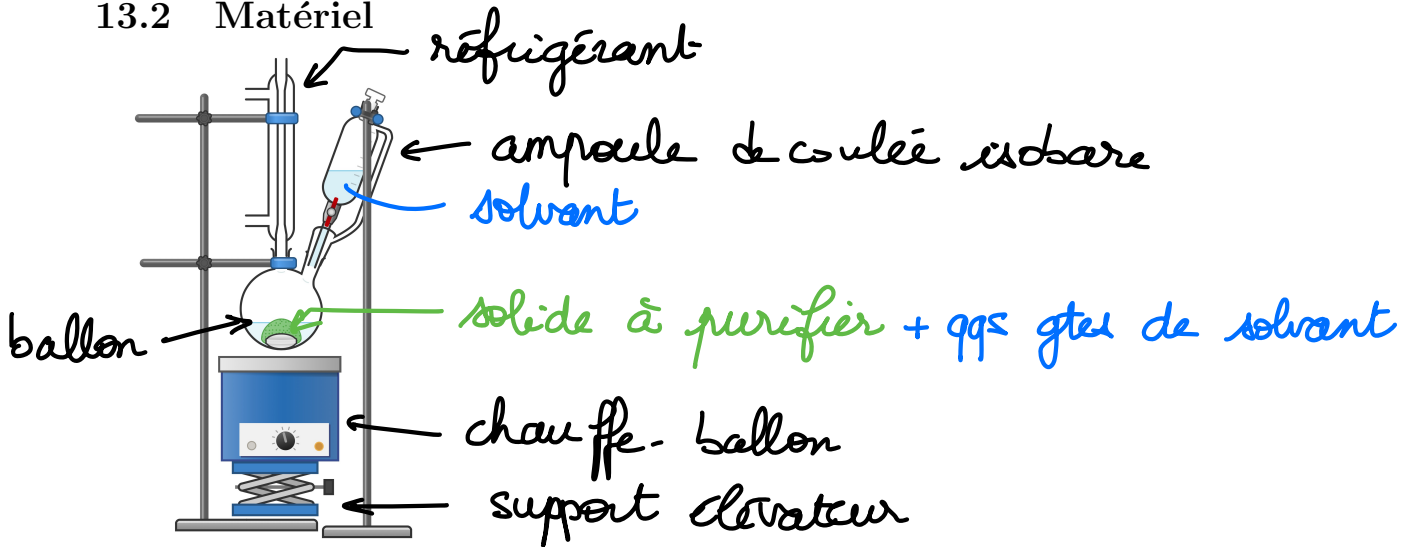 13.2 Matériel
réfrigérant
ampoule de coulée isobare
solvant
solide à purifier + qqs gtes de solvant
ballon
chauffe-ballon
support élévateur